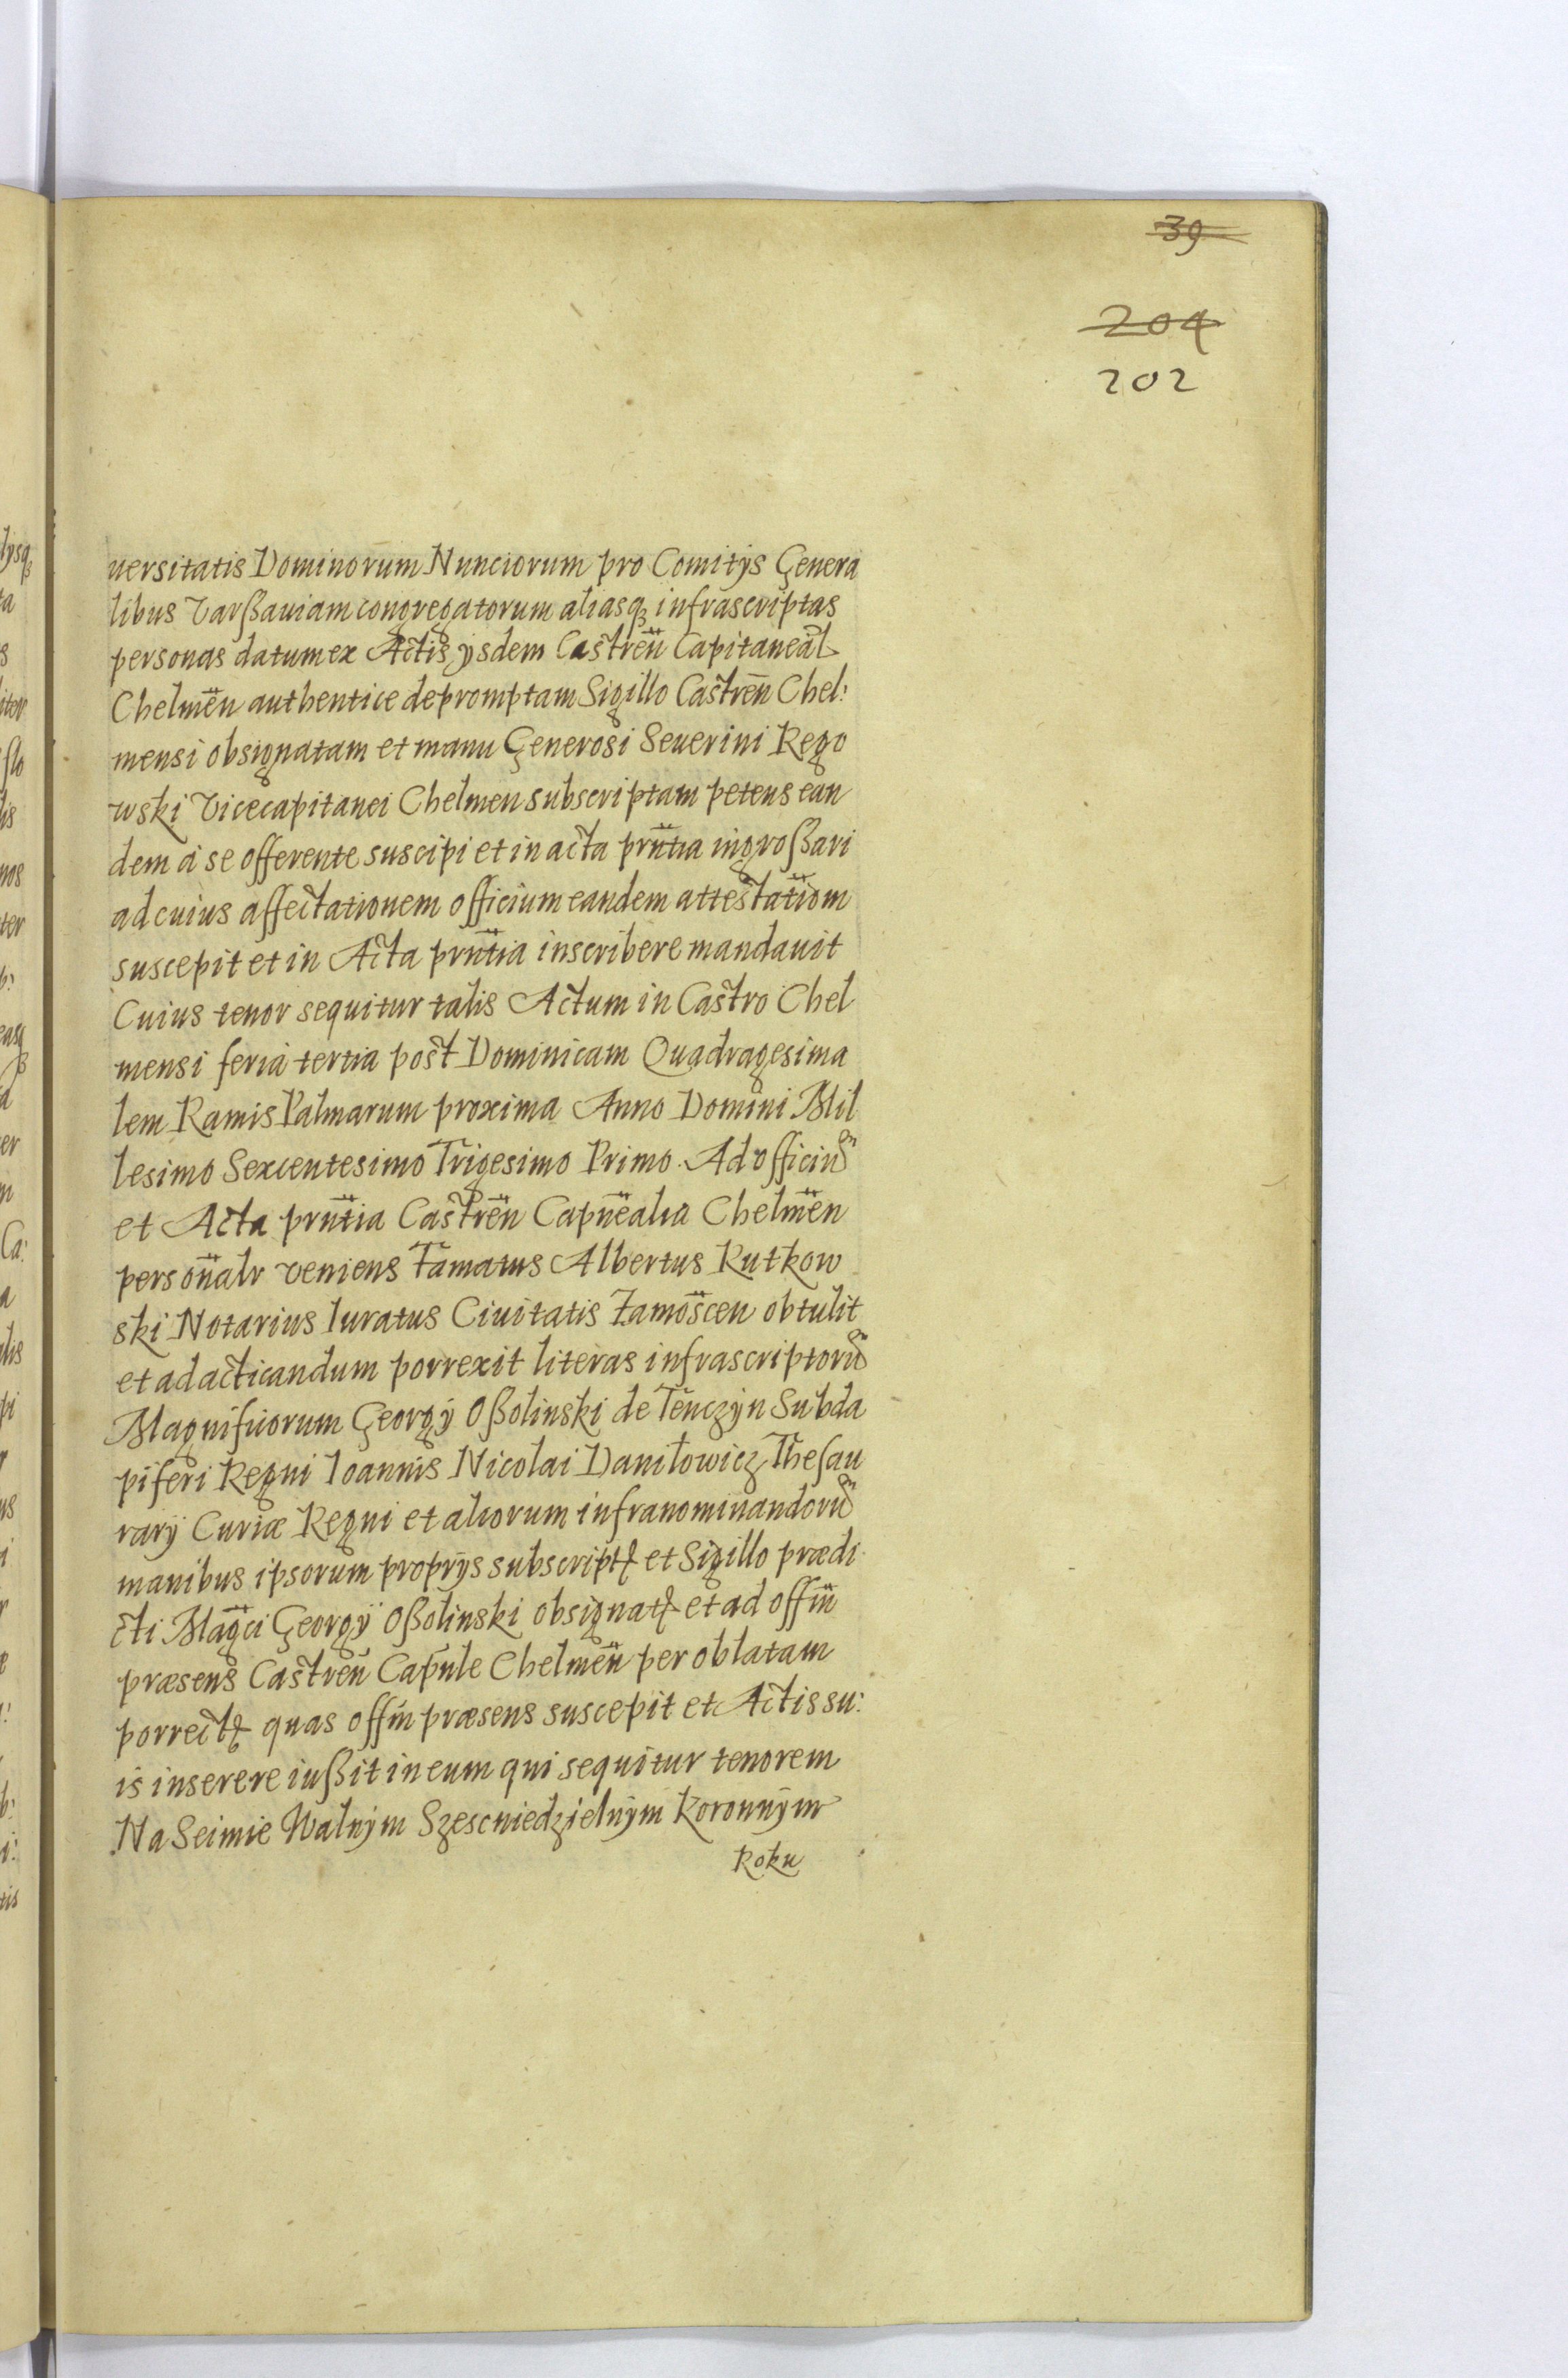 39
204
202
uersitatis Dominorum Nunciorum pro Comitÿs Genera
libus Varßauiam congregatorum aliasqꝫ infrascriptas
personas datum ex Actis ÿsdem Castren̄ Capitaneal
Chelmen̄ authentice depromptam Sigillo Castren̄ Chel:
mensi obsignatam et manu Generosi Seuerini Rego
wski Vicecapitanei Chelmen subscriptam petens ean
dem a se offerente suscipi et in acta prn̄tia ingroßari
ad cuius affectationem officium eandem attestatiom̄
suscepit et in Acta prn̄tia inscribere mandauit
Cuius tenor sequitur talis Actum in Castro Chel
mensi feria tertia post Dominicam Quadragesima
lem Ramis Palmarum proxima Anno Domini Mil
lesimo Sexcentesimo Trigesimo Primo. Ad officiū
et Acta prn̄tia Castren̄ Capn̄ealia Chelmen̄
person̄alr veniens Famatus Albertus Rutkow
ski Notarius Iuratus Ciuitatis Zamoscen̄ obtulit
et ad acticandum porrexit literas infrascriptorū
Magnificorum Georgÿ Oßolinski de Tenczÿn Subda
piferi Regni Ioannis Nicolai Daniłowicz Thesau
rarÿ Curiæ Regni et aliorum infranominandorū
manibus ipsorum proprÿs subscriptꝭ et Sigillo prædi
cti Mag̅ci Georgÿ Oßolinski obsignatꝭ et ad offm̄
præsens Castren̄ Capn̄le Chelmen̄ per oblatam
porrectꝭ quas offm̄ præsens suscepit et Actis su:
is inserere iußit in eum qui sequitur tenorem
Na Seimie Walnÿm Szescniedzielnÿm Koronnÿm
Roku